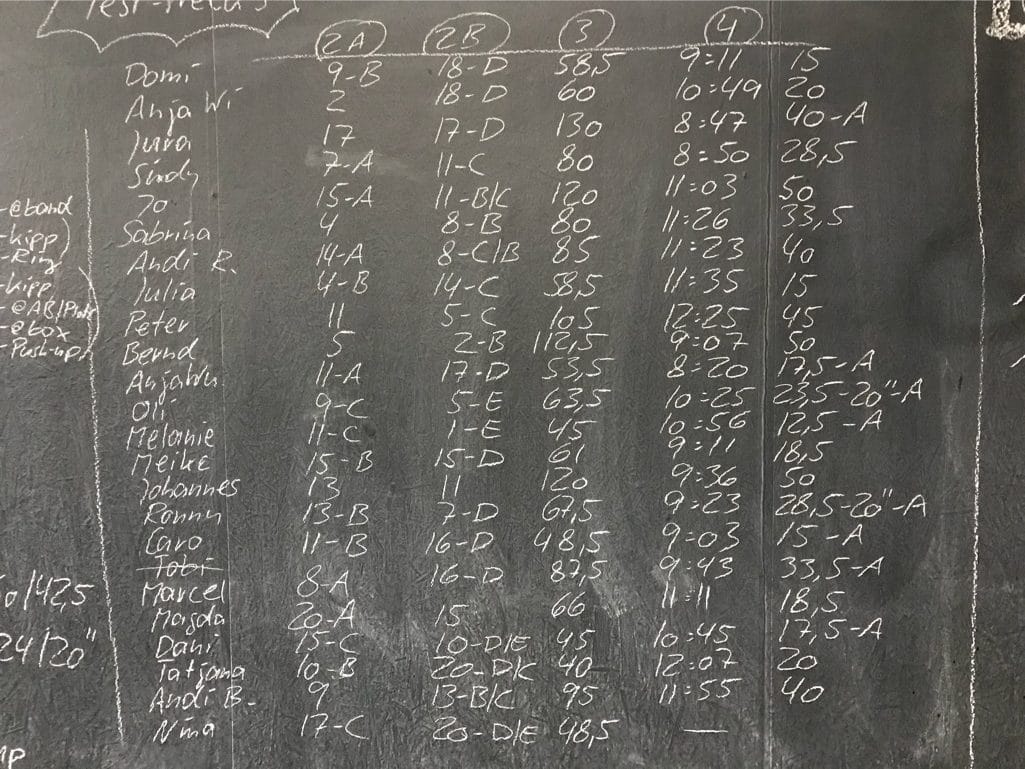 2A 2B 3 4
Domi 9-B 18-D 58,5 9:11 15
Anja Wi 2 18-D 60 10:49 20
Jura 17 17-D 130 8:47 40-A
Sindy 7-A 11-C 80 8:50 28,5
Jo 15-A 11-B/C 120 11:03 50
-@band
Sabrina 4 8-B 80 11:26 33,5
-kipp)
Andi R. 14-A 8-C/B 85 11:23 40
-Ring
Julia 4-B 14-C 58,5 11:35 15
-kipp
Peter 11 5-C 105 12:25 45
-@box
Bernd 5 2-B 112,5 9:07 50
-Push-up
AnjaWu 11-A 17-D 53,5 8:20 17,5-A
Oli 9-C 5-E 63,5 10:25 23,5-20"-A
Melanie 11-C 1-E 45 10:56 12,5-A
Meike 15-B 15-D 61 9:11 18,5
Johannes 13 11 120 9:36 50
Ronny 13-B 7-D 67,5 9:23 28,5-20"-A
Caro 11-B 16-D 48,5 9:03 15-A
Tobi
Marcel 8-A 16-D 87,5 9:43 33,5-A
Magda 20-A 15 66 11:11 18,5
24/20"
Dani 15-C 10-D/E 45 10:45 17,5-A
Tatjana 10-B 20-D/C 40 12:07 20
Andi B. 9 13-B/C 95 11:55 40
Nina 17-C 20-D/E 48,5 —